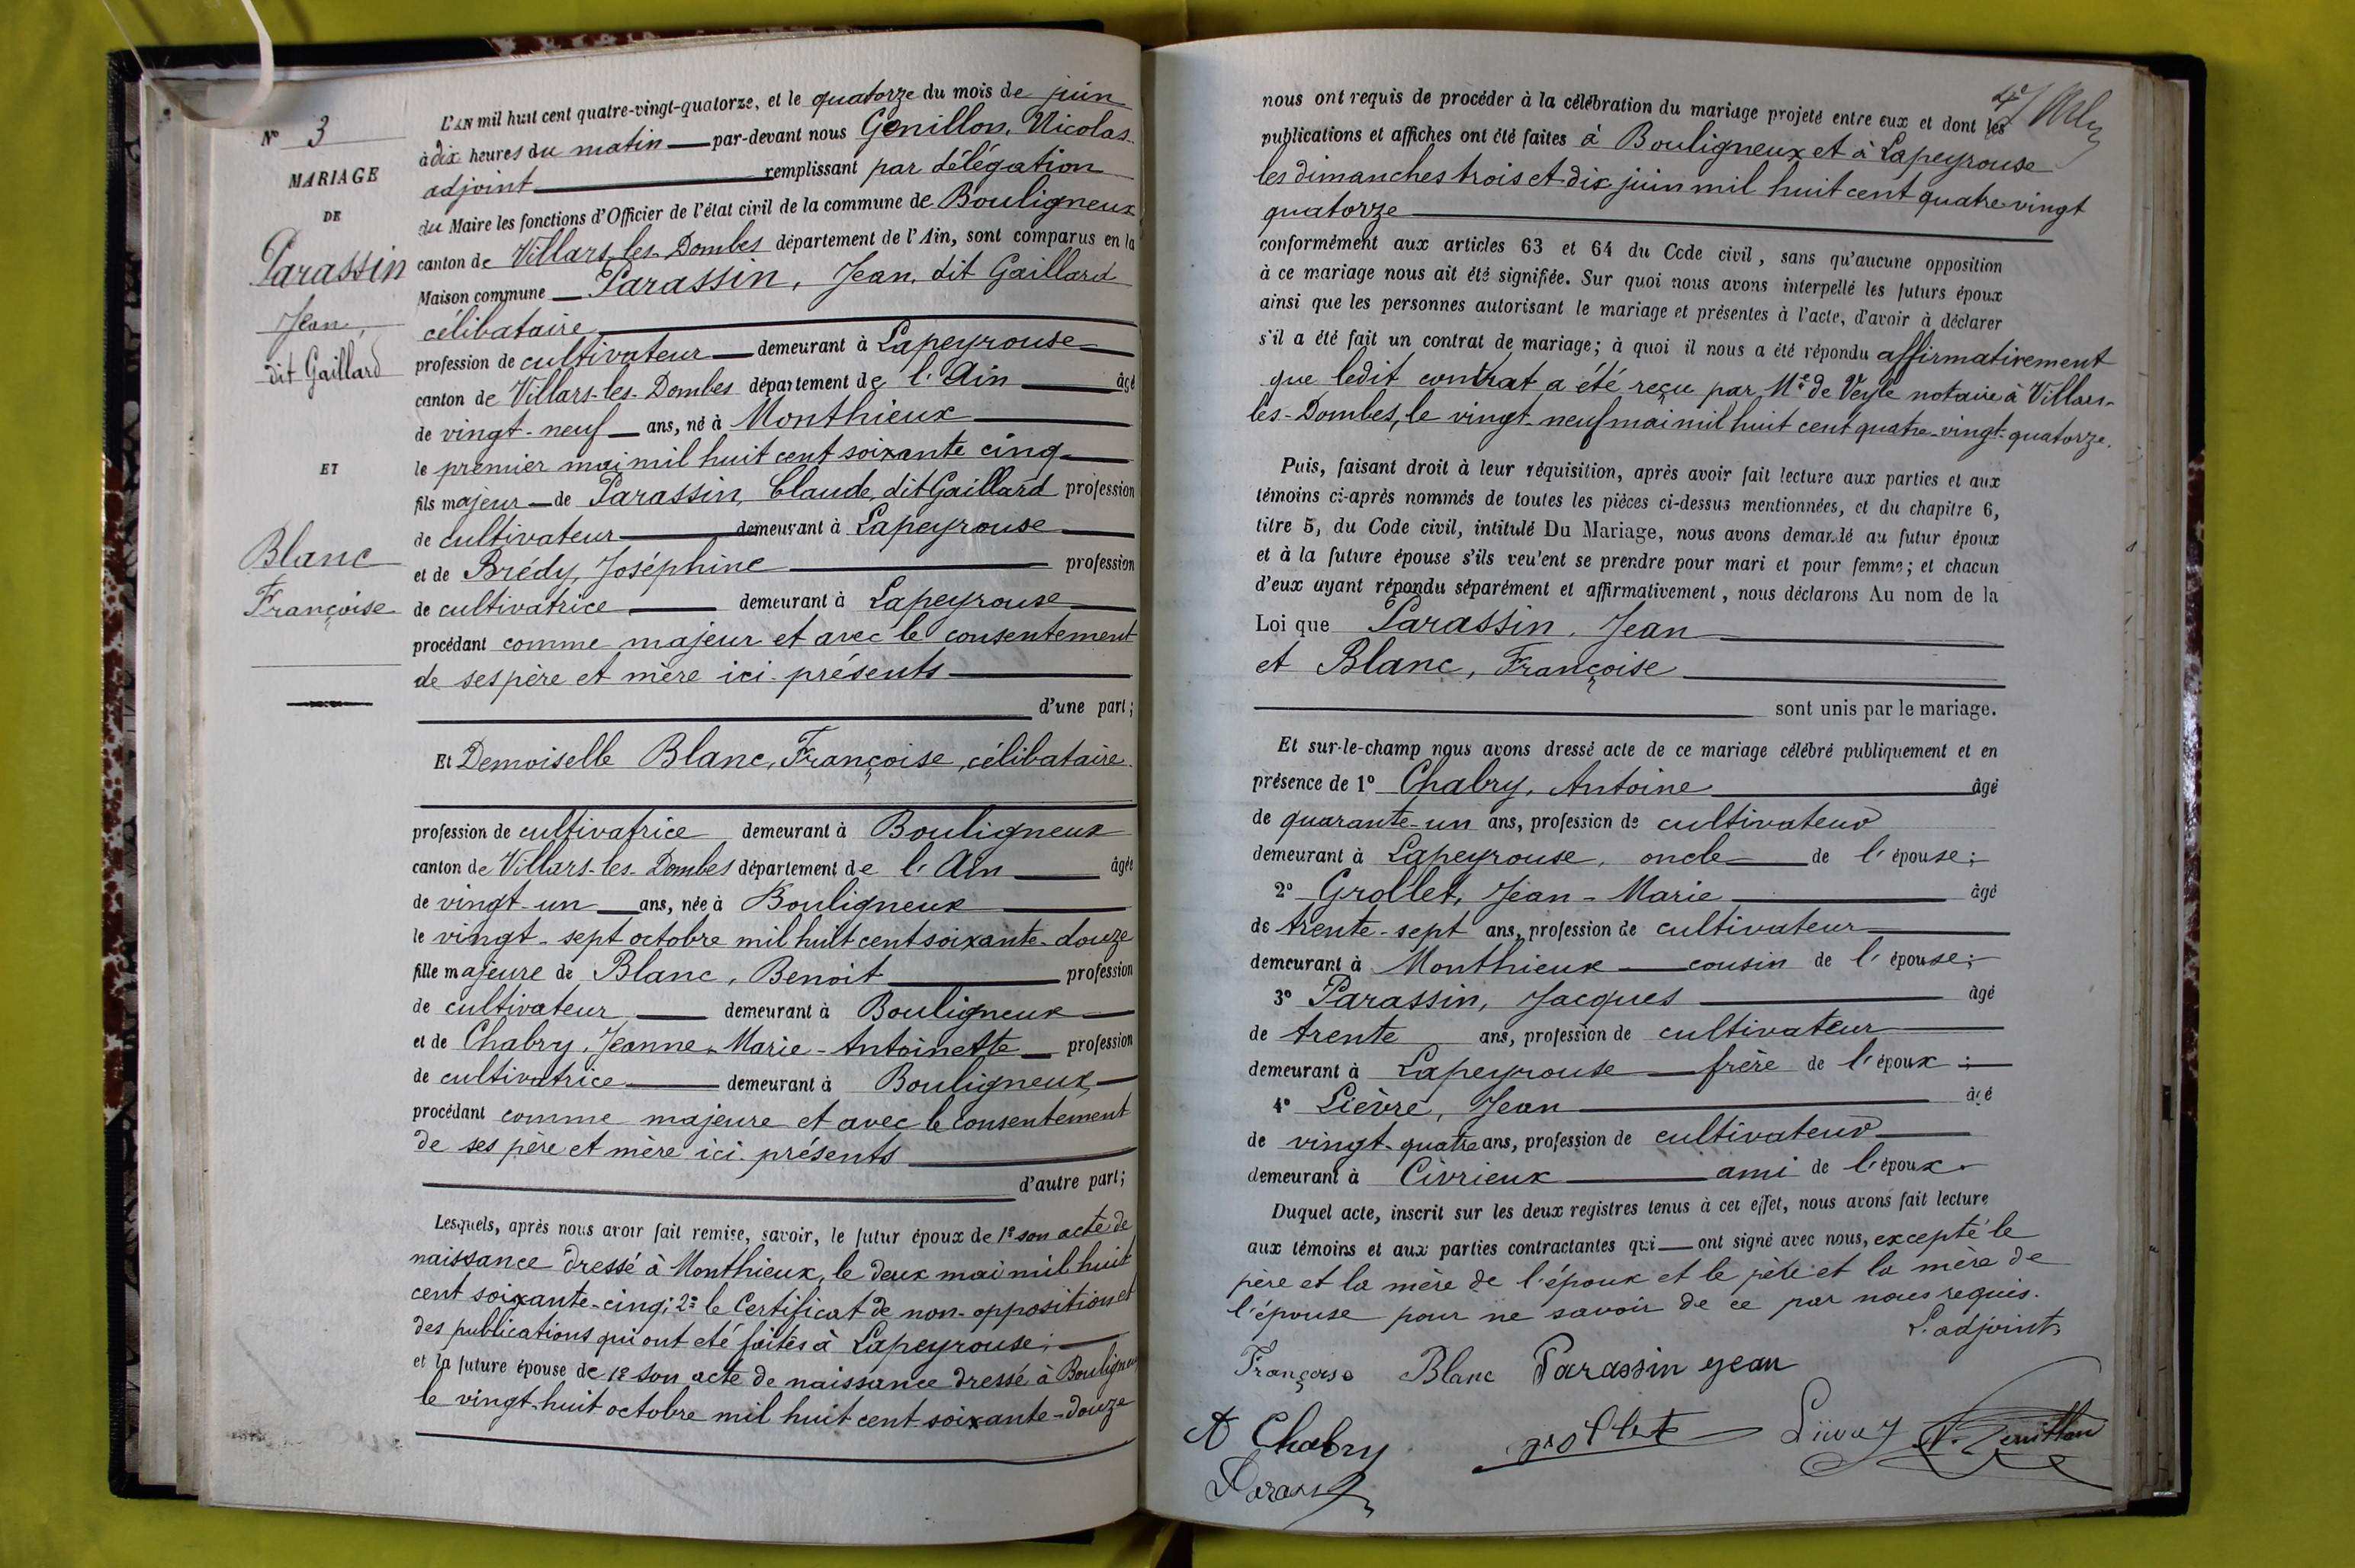 N° 3
MARIAGE
DE
Parassin
Jean,
dit Gaillard
ET
Blanc
Françoise
L'AN mil huit cent quatre-vingt-quatorze, et le quatorze du mois de juin
à dix heures du matin par-devant nous Genillon, Nicolas
adjoint remplissant par délégation
du Maire les fonctions d'Officier de l'état civil de la commune de Bouligneux
canton de Villars-les-Dombes département de l'Ain, sont comparus en la
Maison commune Parassin, Jean, dit Gaillard
célibataire
profession de cultivateur demeurant à Lapeyrouse
canton de Villars-les-Dombes département de l'Ain âgé
de vingt-neuf ans, né à Monthieux
le premier mai mil huit cent soixante cinq
fils majeur de Parassin, Claude, dit Gaillard profession
de cultivateur demeurant à Lapeyrouse
et de Brédy, Joséphine profession
de cultivatrice demeurant à Lapeyrouse
procédant comme majeur et avec le consentement
de ses père et mère ici présents
d'une part;
Et Demoiselle Blanc, Françoise, célibataire
profession de cultivatrice demeurant à Bouligneux
canton de Villars-les-Dombes département de l'Ain âgée
de vingt-un ans, née à Bouligneux
le vingt-sept octobre mil huit cent soixante-douze
fille majeure de Blanc, Benoit profession
de cultivateur demeurant à Bouligneux
et de Chabry, Jeanne-Marie-Antoinette profession
de cultivatrice demeurant à Bouligneux
procédant comme majeure et avec le consentement
de ses père et mère ici présents
d'autre part;
Lesquels, après nous avoir fait remise, savoir, le futur époux de 1° son acte de
naissance dressé à Monthieux, le deux mai mil huit
cent soixante-cinq; 2° le Certificat de non-opposition et
des publications qui ont été faites à Lapeyrouse;
et la future épouse de 1° son acte de naissance dressé à Bouligneux
le vingt-huit octobre mil huit cent soixante-douze
nous ont requis de procéder à la célébration du mariage projeté entre eux et dont les
publications et affiches ont été faites à Bouligneux et à Lapeyrouse
les dimanches trois et dix juin mil huit cent quatre-vingt
quatorze
conformément aux articles 63 et 64 du Code civil, sans qu'aucune opposition
à ce mariage nous ait été signifiée. Sur quoi nous avons interpellé les futurs époux
ainsi que les personnes autorisant le mariage et présentes à l'acte, d'avoir à déclarer
s'il a été fait un contrat de mariage; à quoi il nous a été répondu affirmativement
que ledit contrat a été reçu par Me de Veyle notaire à Villars-
les-Dombes, le vingt-neuf mai mil huit cent quatre-vingt-quatorze.
Puis, faisant droit à leur réquisition, après avoir fait lecture aux parties et aux
témoins ci-après nommés de toutes les pièces ci-dessus mentionnées, et du chapitre 6,
titre 5, du Code civil, intitulé Du Mariage, nous avons demandé au futur époux
et à la future épouse s'ils veulent se prendre pour mari et pour femme; et chacun
d'eux ayant répondu séparément et affirmativement, nous déclarons Au nom de la
Loi que Parassin, Jean
et Blanc, Françoise
sont unis par le mariage.
Et sur-le-champ nous avons dressé acte de ce mariage célébré publiquement et en
présence de 1° Chabry, Antoine âgé
de quarante-un ans, profession de cultivateur
demeurant à Lapeyrouse, oncle de l'épouse;
2° Grollet, Jean-Marie âgé
de trente-sept ans, profession de cultivateur
demeurant à Monthieux cousin de l'épouse;
3° Parassin, Jacques âgé
de trente ans, profession de cultivateur
demeurant à Lapeyrouse frère de l'époux;
4° Lièvre, Jean âgé
de vingt-quatre ans, profession de cultivateur
demeurant à Civrieux ami de l'époux.
Duquel acte, inscrit sur les deux registres tenus à cet effet, nous avons fait lecture
aux témoins et aux parties contractantes qui ont signé avec nous, excepté le
père et la mère de l'époux et le père et la mère de
l'épouse pour ne savoir de ce par nous requis.
L'adjoint,
Françoise Blanc Parassin jean
A Chabry grollet N. Genillon